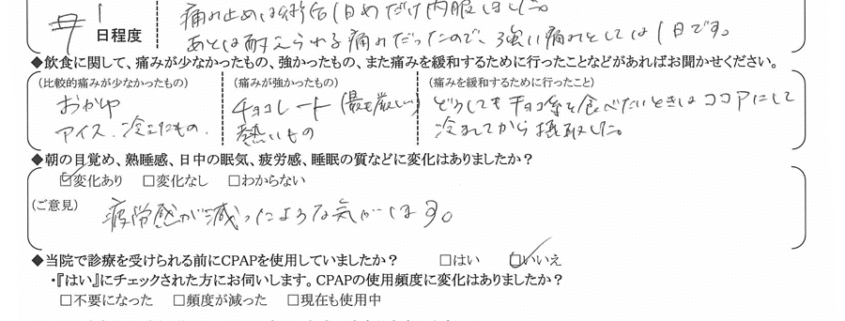 痛み止めは術后1日めだけ内服しました。
1
日程度
あとは耐えられる痛みだったので、強い痛みとしては1日です。
◆飲食に関して、痛みが少なかったもの、強かったもの、また痛みを緩和するために行ったことなどがあればお聞かせください。
(比較的痛みが少なかったもの) (痛みが強かったもの) (痛みを緩和するために行ったこと)
おかゆ チョコレート(最も厳しい) どうしてもチョコ系を食べたいときはココアにして
アイス、冷えたもの. 熱いもの 冷ましてから摂取した。
◆朝の目覚め、熟睡感、日中の眠気、疲労感、睡眠の質などに変化はありましたか?
☑変化あり □変化なし □わからない
(ご意見) 疲労感が減ったような気がします。
◆当院で診療を受けられる前にCPAPを使用していましたか? □はい ☑いいえ
・『はい』にチェックされた方にお伺いします。CPAPの使用頻度に変化はありましたか?
□不要になった □頻度が減った □現在も使用中